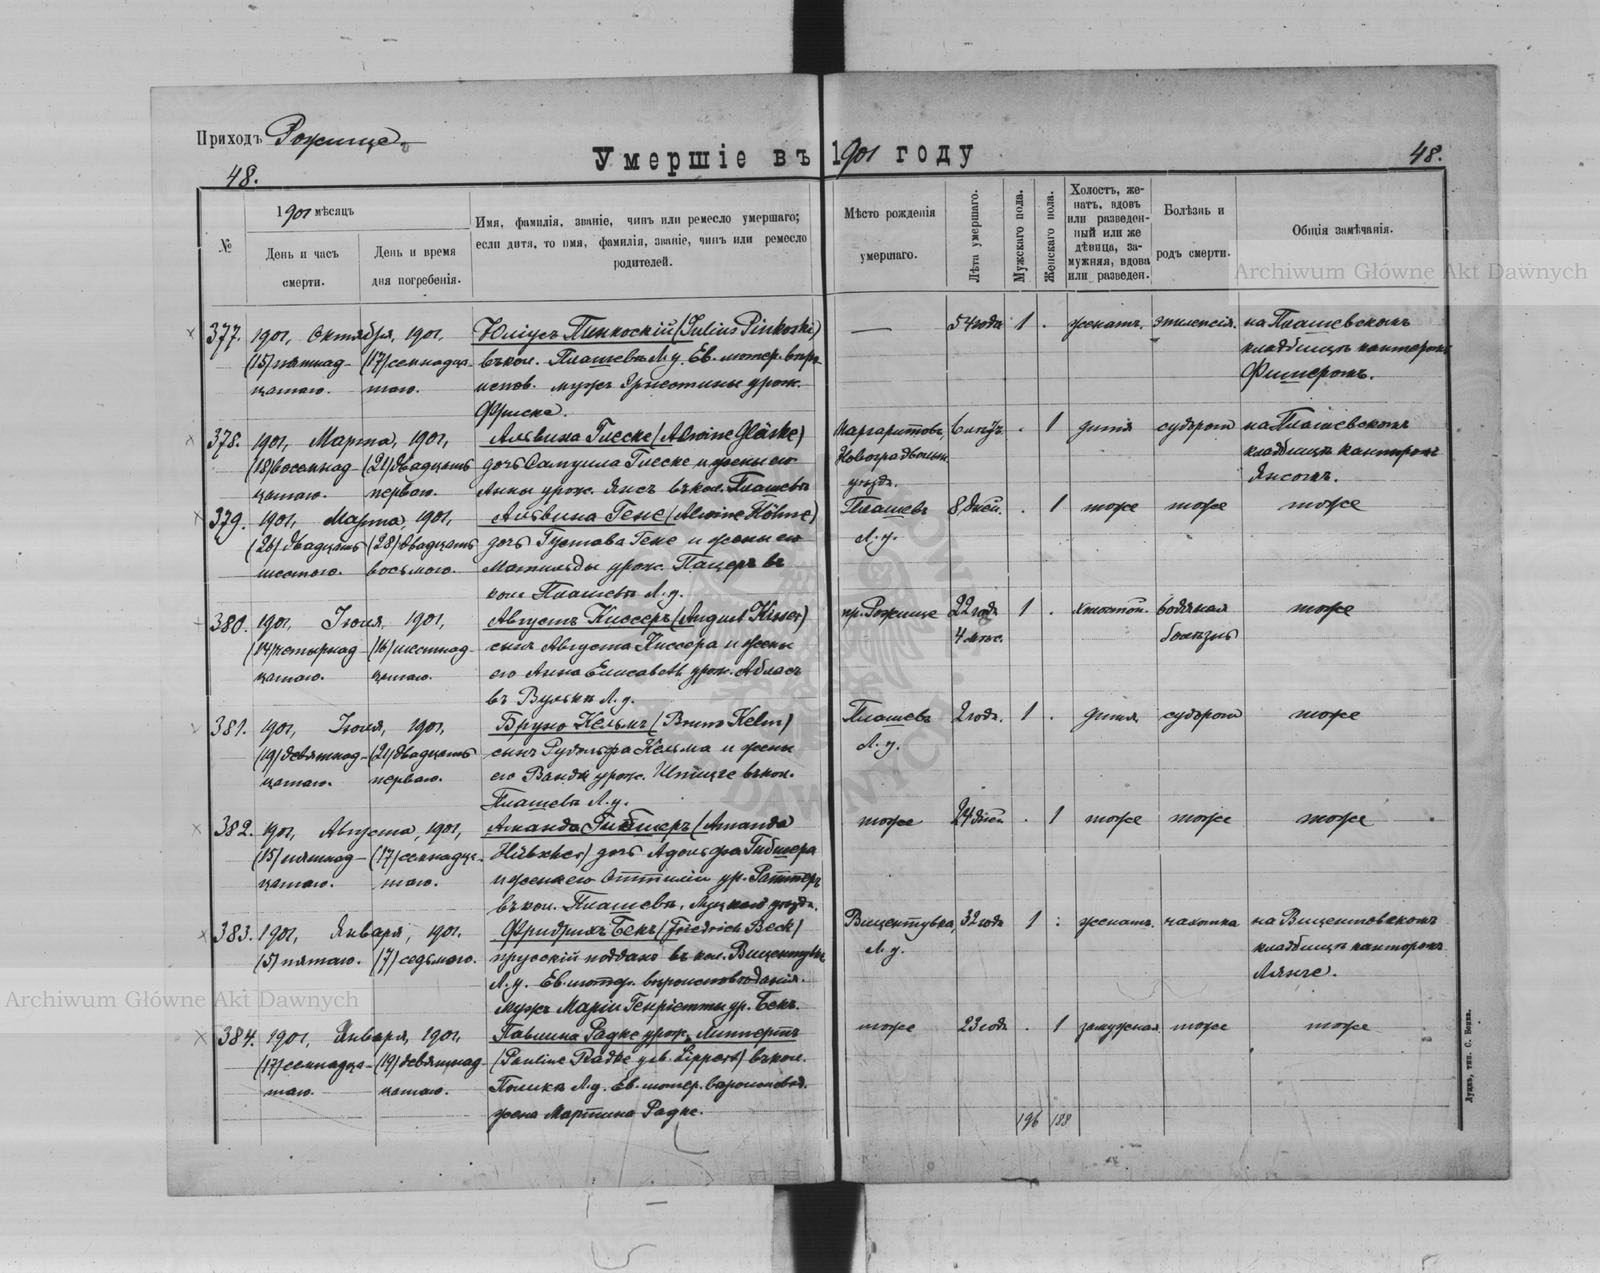 Приходъ Рожище
Умершіе въ 1901 году
48.
48.
№
1901 мѣсяцъ
День и часъ
смерти.
День и время
дня погребенія.
Имя, фамилія, званіе, чинъ или ремесло умершаго;
если дитя, то имя, фамилія, званіе, чинъ или ремесло
родителей.
Мѣсто рожденія
умершаго.
Лѣта умершаго.
Мужскаго пола.
Женскаго пола.
Холостъ, же-
натъ, вдовъ
или разведен-
ный или же
дѣвица, за-
мужняя, вдова
или разведен.
Болѣзнь и
родъ смерти.
Общія замѣчанія.
Archiwum Główne Akt Dawnych
377. 1901, Октября, 1901, Юліусъ Пинкоскій (Julius Pinkoski) — 54 года 1 . женатъ. эпилепсія. на Плашевскомъ
(15) пятнад- (17) семнадца- въ кол. Плашевѣ Л. у. Ев. лютер. вѣро- кладбищѣ канторомъ
цатаго. таго. испов. мужъ Эрнестины урож. Фишеромъ.
Фриске.
378. 1901, Марта, 1901, Альвина Глеске (Alwine Gläske) Маргаритовъ, 6 минут. . 1 дитя судороги на Плашевскомъ
(18) восемнад- (21) двадцать дочь Самуила Глеске и жены его Новоградволын. кладбищѣ канторомъ
цатаго. перваго. Анны урож. Янсъ въ кол. Плашевѣ уѣзда. Янсомъ.
379. 1901, Марта, 1901, Альвина Гене (Alwine Höhne) Плашевъ 8 дней. . 1 тоже тоже тоже
(26) двадцать (28) двадцать дочь Густава Гене и жены его Л. у.
шестого. восьмого. Матильды урож. Пацеръ въ
кол. Плашевѣ Л. у.
380. 1901, Іюля, 1901, Августъ Киссеръ (August Kisser) пр. Рожище 22 года 1 . холостой. водяная тоже
(14) четырнад- (16) шестнад- сынъ Августа Киссера и жены 4 мѣс. болѣзнь
цатаго. цатаго. его Анна Елисавета урож. Абласъ
въ Вулькѣ Л. у.
381. 1901, Іюля, 1901, Бруно Кельмъ (Bruno Kelm) Плашевъ 2 года. 1 . дитя. судороги тоже
(19) девятнад- (21) двадцать сынъ Рудольфа Кельма и жены Л. у.
цатаго. перваго. его Ванды урож. въ кол.
Плашевѣ Л. у.
382. 1901, Августа, 1901, Аманда Гибшеръ (Amanda тоже 24 дней . 1 тоже тоже тоже
(15) пятнад- (17) семнадца- дочь Адольфа Гибшера
цатаго. таго. и жены его Оттиліи ур. Раттеръ
въ кол. Плашевѣ, Луцкаго уѣзда.
383. 1901, Января, 1901. Фридрихъ Бекъ (Friedrich Beck) Вицентувка, 32 года 1 . женатъ. чахотка на Вицентовскомъ
(5) пятаго. (7) седьмого. прусскій поддан. въ кол. Вицентувкѣ Л. у. кладбищѣ канторомъ
Л. у. Ев. лютер. вѣроисповѣданія. Лянге.
мужъ Маріи Генріетты ур. Бекъ.
384. 1901, Января, 1901, Павлина Радке урож. Липпертъ тоже 23 года . 1 замужная тоже тоже
(17) семнадца- (19) девятнад- (Pauline Radke geb. Lippert) въ кол.
таго. цатаго. Л. у. Ев. лютер. вѣроисповѣд.
жена Мартина Радке.
196 188
Луцкъ, тип. С. Бонка.
Archiwum Główne Akt Dawnych